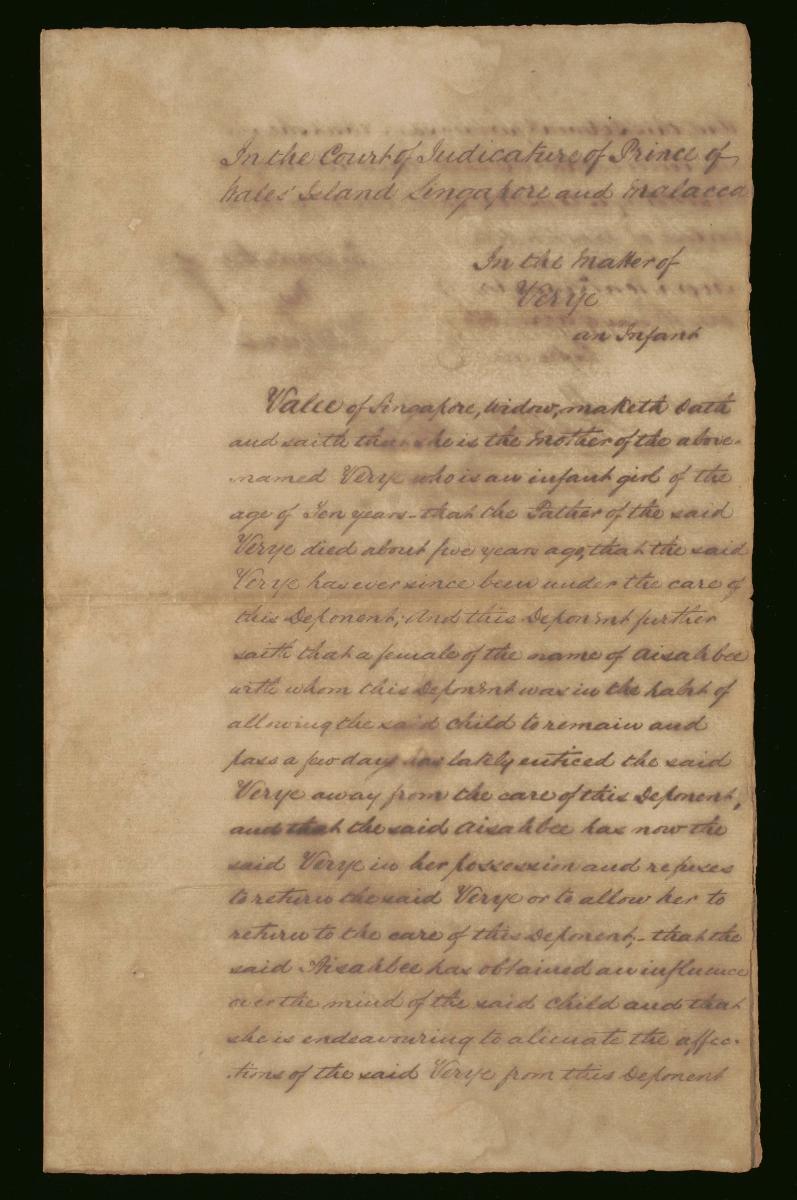 In the Court of Judicature of Prince of
Wales' Island Singapore and Malacca
In the Matter of
Verye
an Infant
Valee of Singapore, Widow, maketh Oath
and saith that she is the Mother of the above-
named Verye who is an infant girl of the
age of Ten years - that the Father of the said
Verye died about five years ago, that the said
Verye has ever since been under the care of
this Deponent; And this Deponent further
saith that a female of the name of Aisahbee
with whom this Deponent was in the habit of
allowing the said child to remain and
pass a few days has lately enticed the said
Verye away from the care of this Deponent,
and that the said Aisahbee has now the
said Verye in her possession and refuses
to return the said Verye or to allow her to
return to the care of this Deponent, - that the
said Aisahbee has obtained an influence
over the mind of the said child and that
she is endeavouring to alienate the affec-
-tions of the said Verye from this Deponent